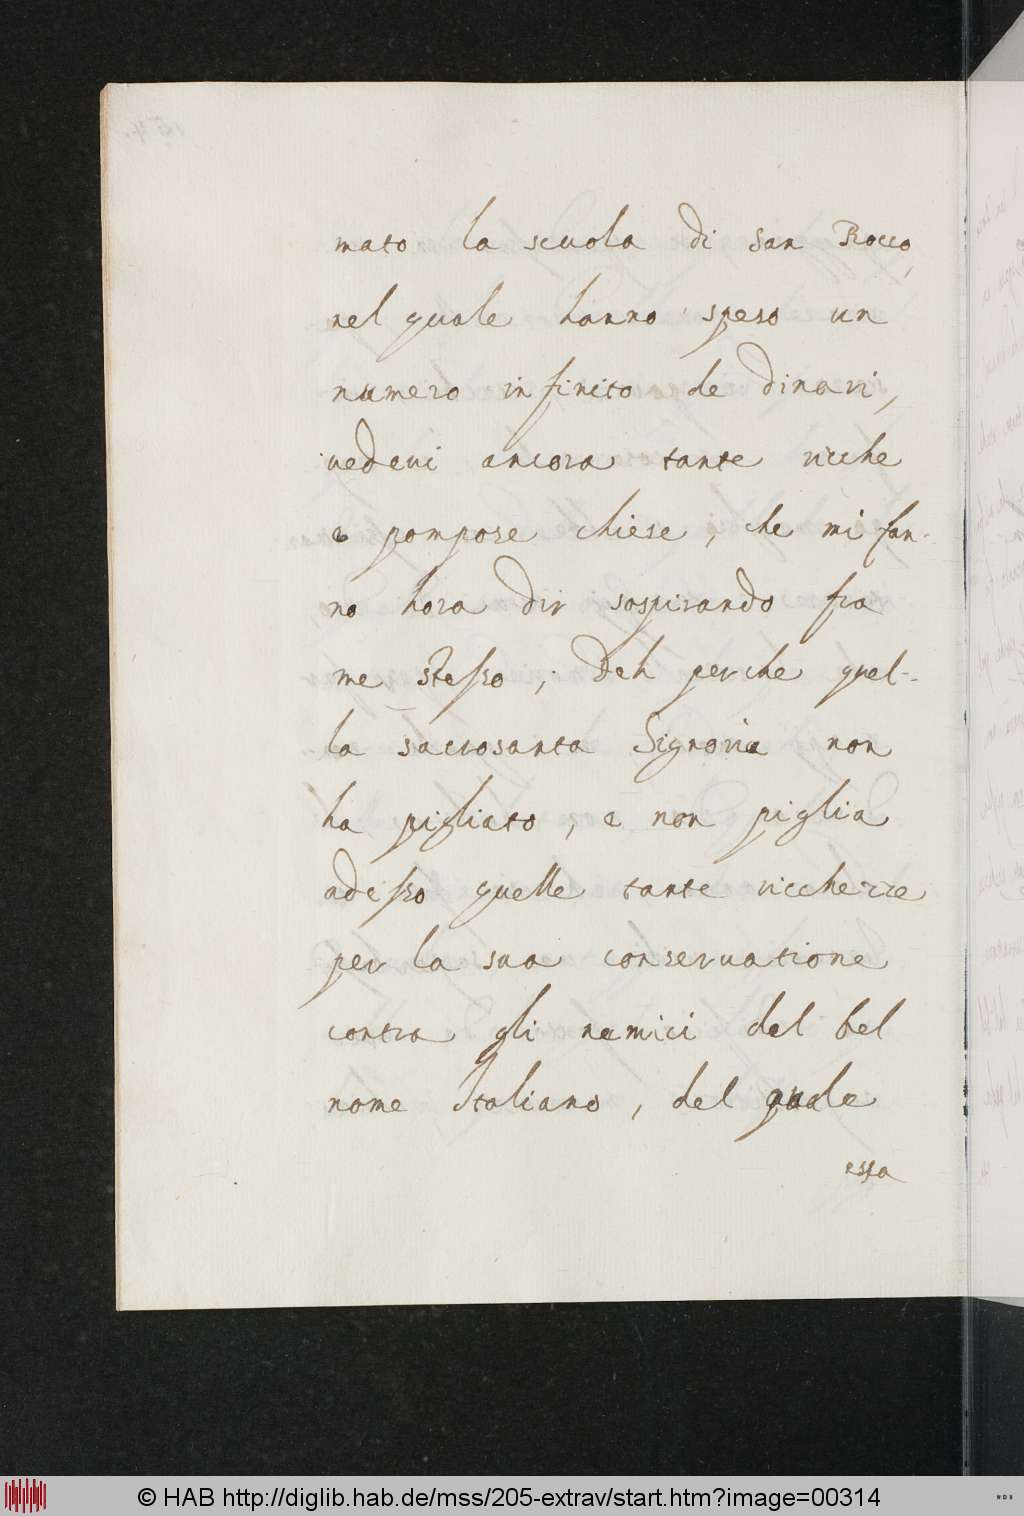 mato la scuola di San Rocco,
nel quale hanno speso un
numero infinito de dinari,
vedevi ancora tante ricche
e pompose chiese, che mi fan-
no hora dir sospirando fra
me stesso; Deh perche quel-
la sacrosanta Signoria non
ha pigliato, e non piglia
adesso quelle tante riccherre
per la sua conservatione
contra gli nemici del bel
nome Italiano, del quale
essa
© HAB http://diglib.hab.de/mss/205-extrav/start.htm?image=00314